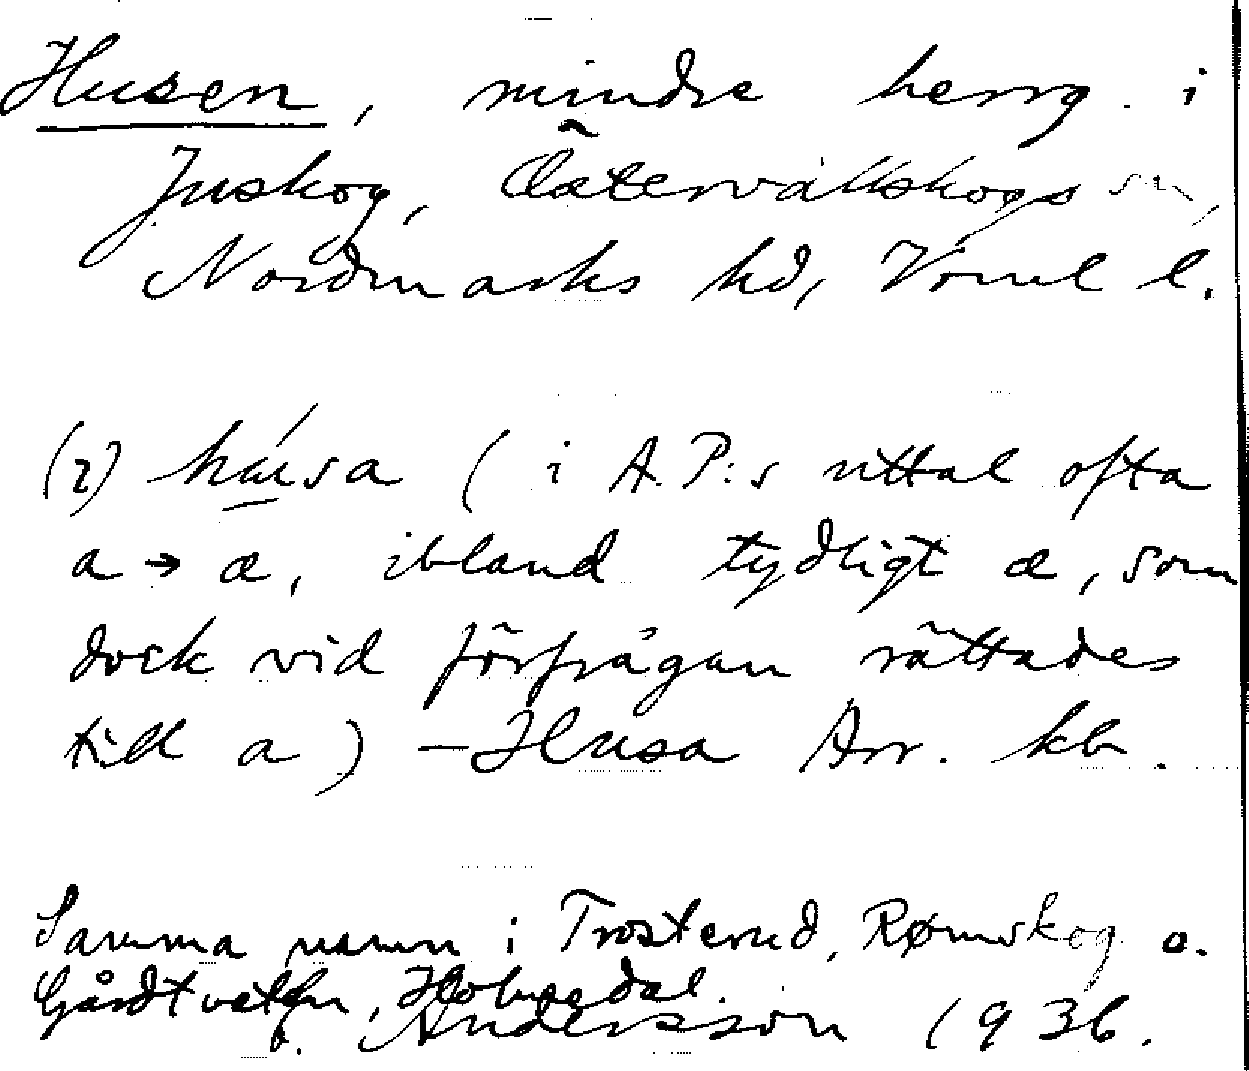 Husen, mindre herrg. i
Juskog, Östervallskogs sn,
Nordmarks hd, Värml l.
(i A.P:s uttal ofta
a → æ, ibland tydligt æ, som
dock vid förfrågan rättades
till a) – Husa Arr. kb.
Samma namn i Trosterud, Rømskog o.
Andersson 1936.